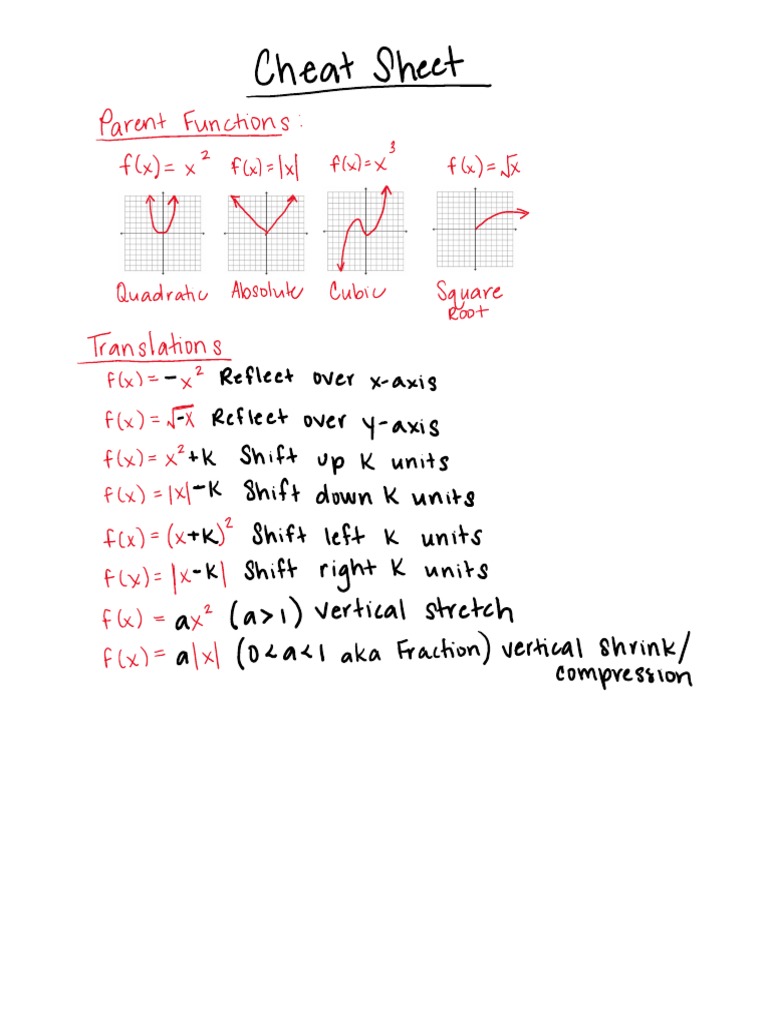 Cheat Sheet
Parent Functions:
f(x) = x² f(x) = |x| f(x) = x³ f(x) = √x
Quadratic Absolute Cubic Square Root
Translations
f(x) = -x² Reflect over x-axis
f(x) = √-x Reflect over y-axis
f(x) = x² + K Shift up K units
f(x) = |x| - K Shift down K units
f(x) = (x + K)² Shift left K units
f(x) = |x - K| Shift right K units
f(x) = ax² (a > 1) vertical stretch
f(x) = a|x| (0 < a < 1 aka Fraction) vertical shrink/
compression